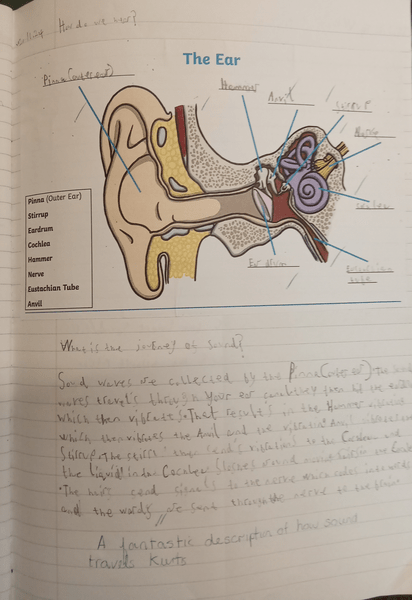 How do we hear?
The Ear
Pinna (outer ear)
Hammer
Anvil
Stirrup
Nerve
Cochlea
Ear drum
Eustachian
tube
Pinna (Outer Ear)
Stirrup
Eardrum
Cochlea
Hammer
Nerve
Eustachian Tube
Anvil
What is the journey of sound?
Sound waves are collected by the Pinna (outer ear). The
waves travels through your ear canal they then hit the
which then vibrates. That results in the Hammer
which then vibrates the Anvil and the vibrating Anvil
Stirrup. The stirrup then sends vibrations to the Cochlea and
the liquid in the Cochlea sloshes around
The hairs send signals to the nerve which codes into words
and the words are sent through the nerve to the brain.
A fantastic description of how sound
travels Kurtis